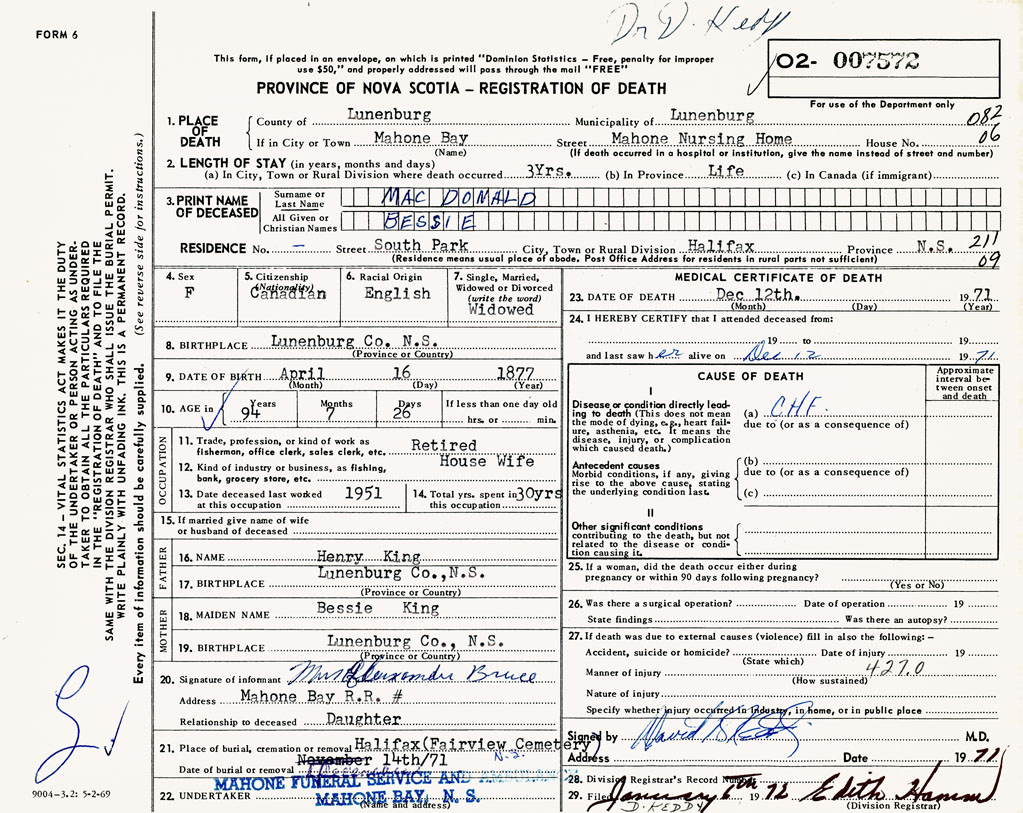 Dr D. Keddy
FORM 6
This form, if placed in an envelope, on which is printed "Dominion Statistics – Free, penalty for improper
use $50," and properly addressed will pass through the mail "FREE"
PROVINCE OF NOVA SCOTIA – REGISTRATION OF DEATH
02- 007572
For use of the Department only
1. PLACE OF DEATH
County of Lunenburg Municipality of Lunenburg 082
If in City or Town Mahone Bay Street Mahone Nursing Home House No. 06
(Name) (If death occurred in a hospital or institution, give the name instead of street and number)
2. LENGTH OF STAY (in years, months and days)
(a) In City, Town or Rural Division where death occurred 3Yrs. (b) In Province Life (c) In Canada (if immigrant)
3. PRINT NAME OF DECEASED
Surname or Last Name MAC DONALD
All Given or Christian Names BESSIE
RESIDENCE No. – Street South Park City, Town or Rural Division Halifax Province N.S. 211
(Residence means usual place of abode. Post Office Address for residents in rural parts not sufficient) 09
4. Sex F
5. Citizenship (Nationality) Canadian
6. Racial Origin English
7. Single, Married, Widowed or Divorced (write the word) Widowed
8. BIRTHPLACE Lunenburg Co. N.S.
(Province or Country)
9. DATE OF BIRTH April 16 1877
(Month) (Day) (Year)
10. AGE in Years 94 Months 7 Days 26 If less than one day old hrs. or min.
OCCUPATION
11. Trade, profession, or kind of work as fisherman, office clerk, sales clerk, etc. Retired
12. Kind of industry or business, as fishing, bank, grocery store, etc. House Wife
13. Date deceased last worked at this occupation 1951
14. Total yrs. spent in this occupation 30yrs
15. If married give name of wife or husband of deceased
FATHER
16. NAME Henry King
17. BIRTHPLACE Lunenburg Co.,N.S.
(Province or Country)
MOTHER
18. MAIDEN NAME Bessie King
19. BIRTHPLACE Lunenburg Co., N.S.
(Province or Country)
20. Signature of informant Mrs Alexander Bruce
Address Mahone Bay R.R. #
Relationship to deceased Daughter
21. Place of burial, cremation or removal Halifax(Fairview Cemetery)
N.S.
Date of burial or removal November 14th/71
MAHONE FUNERAL SERVICE AND
22. UNDERTAKER MAHONE BAY, N. S.
(Name and address)
MEDICAL CERTIFICATE OF DEATH
23. DATE OF DEATH Dec 12th. 1971
(Month) (Day) (Year)
24. I HEREBY CERTIFY that I attended deceased from:
19 to 19
and last saw her alive on Dec 12 1971
CAUSE OF DEATH
Approximate interval between onset and death
I
Disease or condition directly leading to death (This does not mean the mode of dying, e.g., heart failure, asthenia, etc. It means the disease, injury, or complication which caused death.)
(a) CHF
due to (or as a consequence of)
Antecedent causes
Morbid conditions, if any, giving rise to the above cause, stating the underlying condition last.
(b)
due to (or as a consequence of)
(c)
II
Other significant conditions contributing to the death, but not related to the disease or condition causing it.
25. If a woman, did the death occur either during pregnancy or within 90 days following pregnancy?
(Yes or No)
26. Was there a surgical operation? Date of operation 19
State findings Was there an autopsy?
27. If death was due to external causes (violence) fill in also the following: –
Accident, suicide or homicide? Date of injury 19
(State which)
Manner of injury 427.0
(How sustained)
Nature of injury
Specify whether injury occurred in industry, in home, or in public place
Signed by M.D.
Address Date 1971
28. Division Registrar's Record Number
29. Filed January 6th 1972 Edith Hamm
D. KEDDY (Division Registrar)
SEC. 14 – VITAL STATISTICS ACT MAKES IT THE DUTY
OF THE UNDERTAKER OR PERSON ACTING AS UNDER-
TAKER TO OBTAIN ALL THE PARTICULARS REQUIRED
IN THE "REGISTRATION OF DEATH" AND TO FILE THE
SAME WITH THE DIVISION REGISTRAR WHO SHALL ISSUE THE BURIAL PERMIT.
WRITE PLAINLY WITH UNFADING INK. THIS IS A PERMANENT RECORD.
Every item of information should be carefully supplied. (See reverse side for instructions.)
9004-3.2: 5-2-69